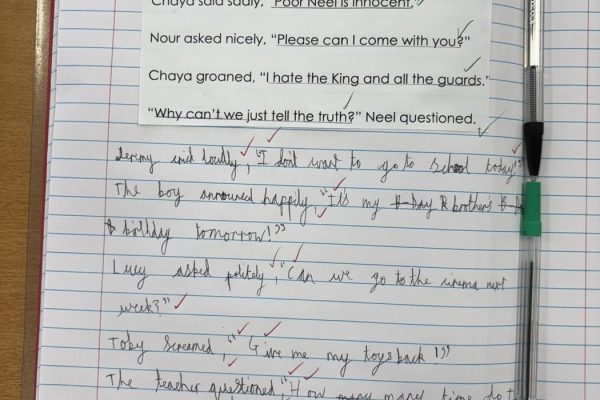 Chaya said sadly, "Poor Neel is innocent."
Nour asked nicely, "Please can I come with you?"
Chaya groaned, "I hate the King and all the guards."
"Why can't we just tell the truth?" Neel questioned.
Jeremy loudly, "I don't want to go to school today!"
The boy happily, "It's my B-day R brother's
tomorrow!"
Lucy asked politely, "Can we go to the cinema next
week?"
Toby screamed, "Give me my toys back!"
The teacher questioned, "How many many time do